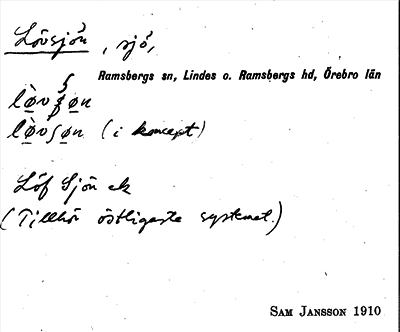 Lövsjön, sjö,
Ramsbergs sn, Lindes o. Ramsbergs hd, Örebro län
lø̀vʃøn
lø̀vʃøn (i koncept)
Löf Sjön ek
(Tillhör östligaste systemet.)
SAM JANSSON 1910